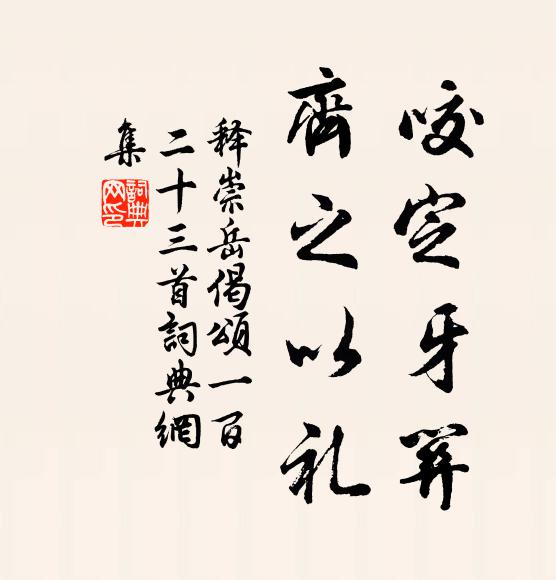 咬定牙關
齊之以礼
释崇岳偈頌一百
二十三首詞典網
集
詞典網印